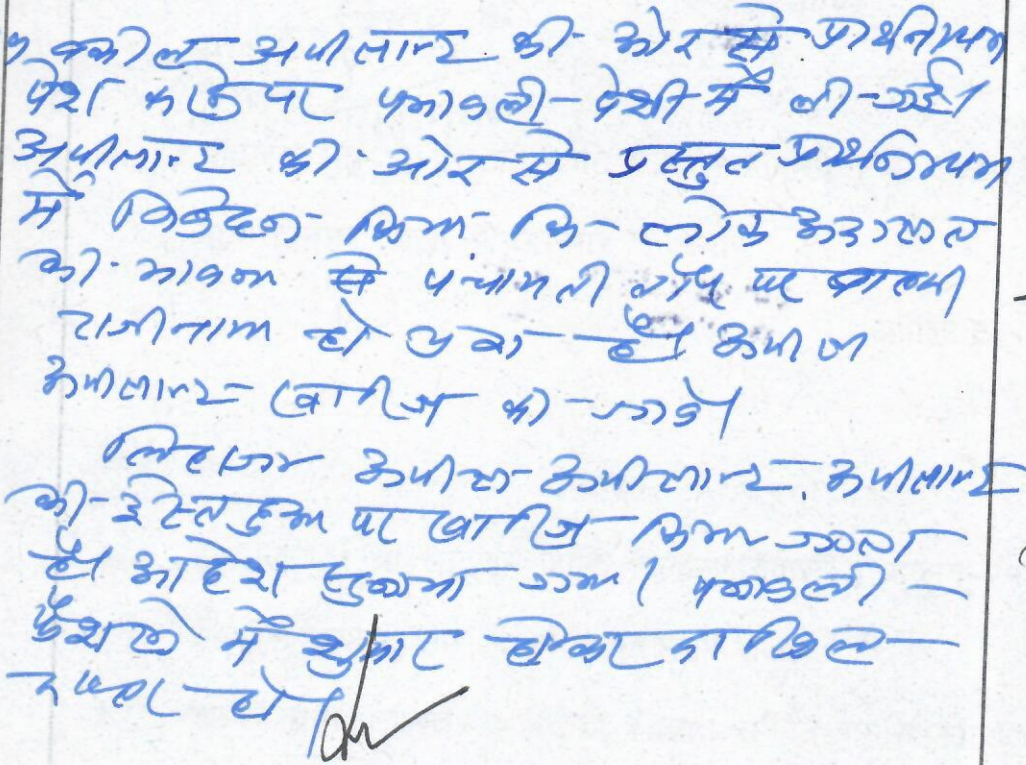 वकील अपीलान्ट की ओर से प्रार्थनापत्र
पेश करने पर पत्रावली पेशी में ली गई।
अपीलान्ट की ओर से प्रस्तुत प्रार्थनापत्र
में निवेदन किया कि लोक अदालत
की भावना से पंचायती तौर पर आपसी
राजीनामा हो चुका है। अपील
अपीलान्ट खारिज की जावे।
लिहाजा अपील अपीलान्ट, अपीलान्ट
की इस्तदुआ पर खारिज किया जाता
है। आदेश सुनाया गया। पत्रावली
फैशल में शुमार होकर दाखिल
दफ्तर हो।